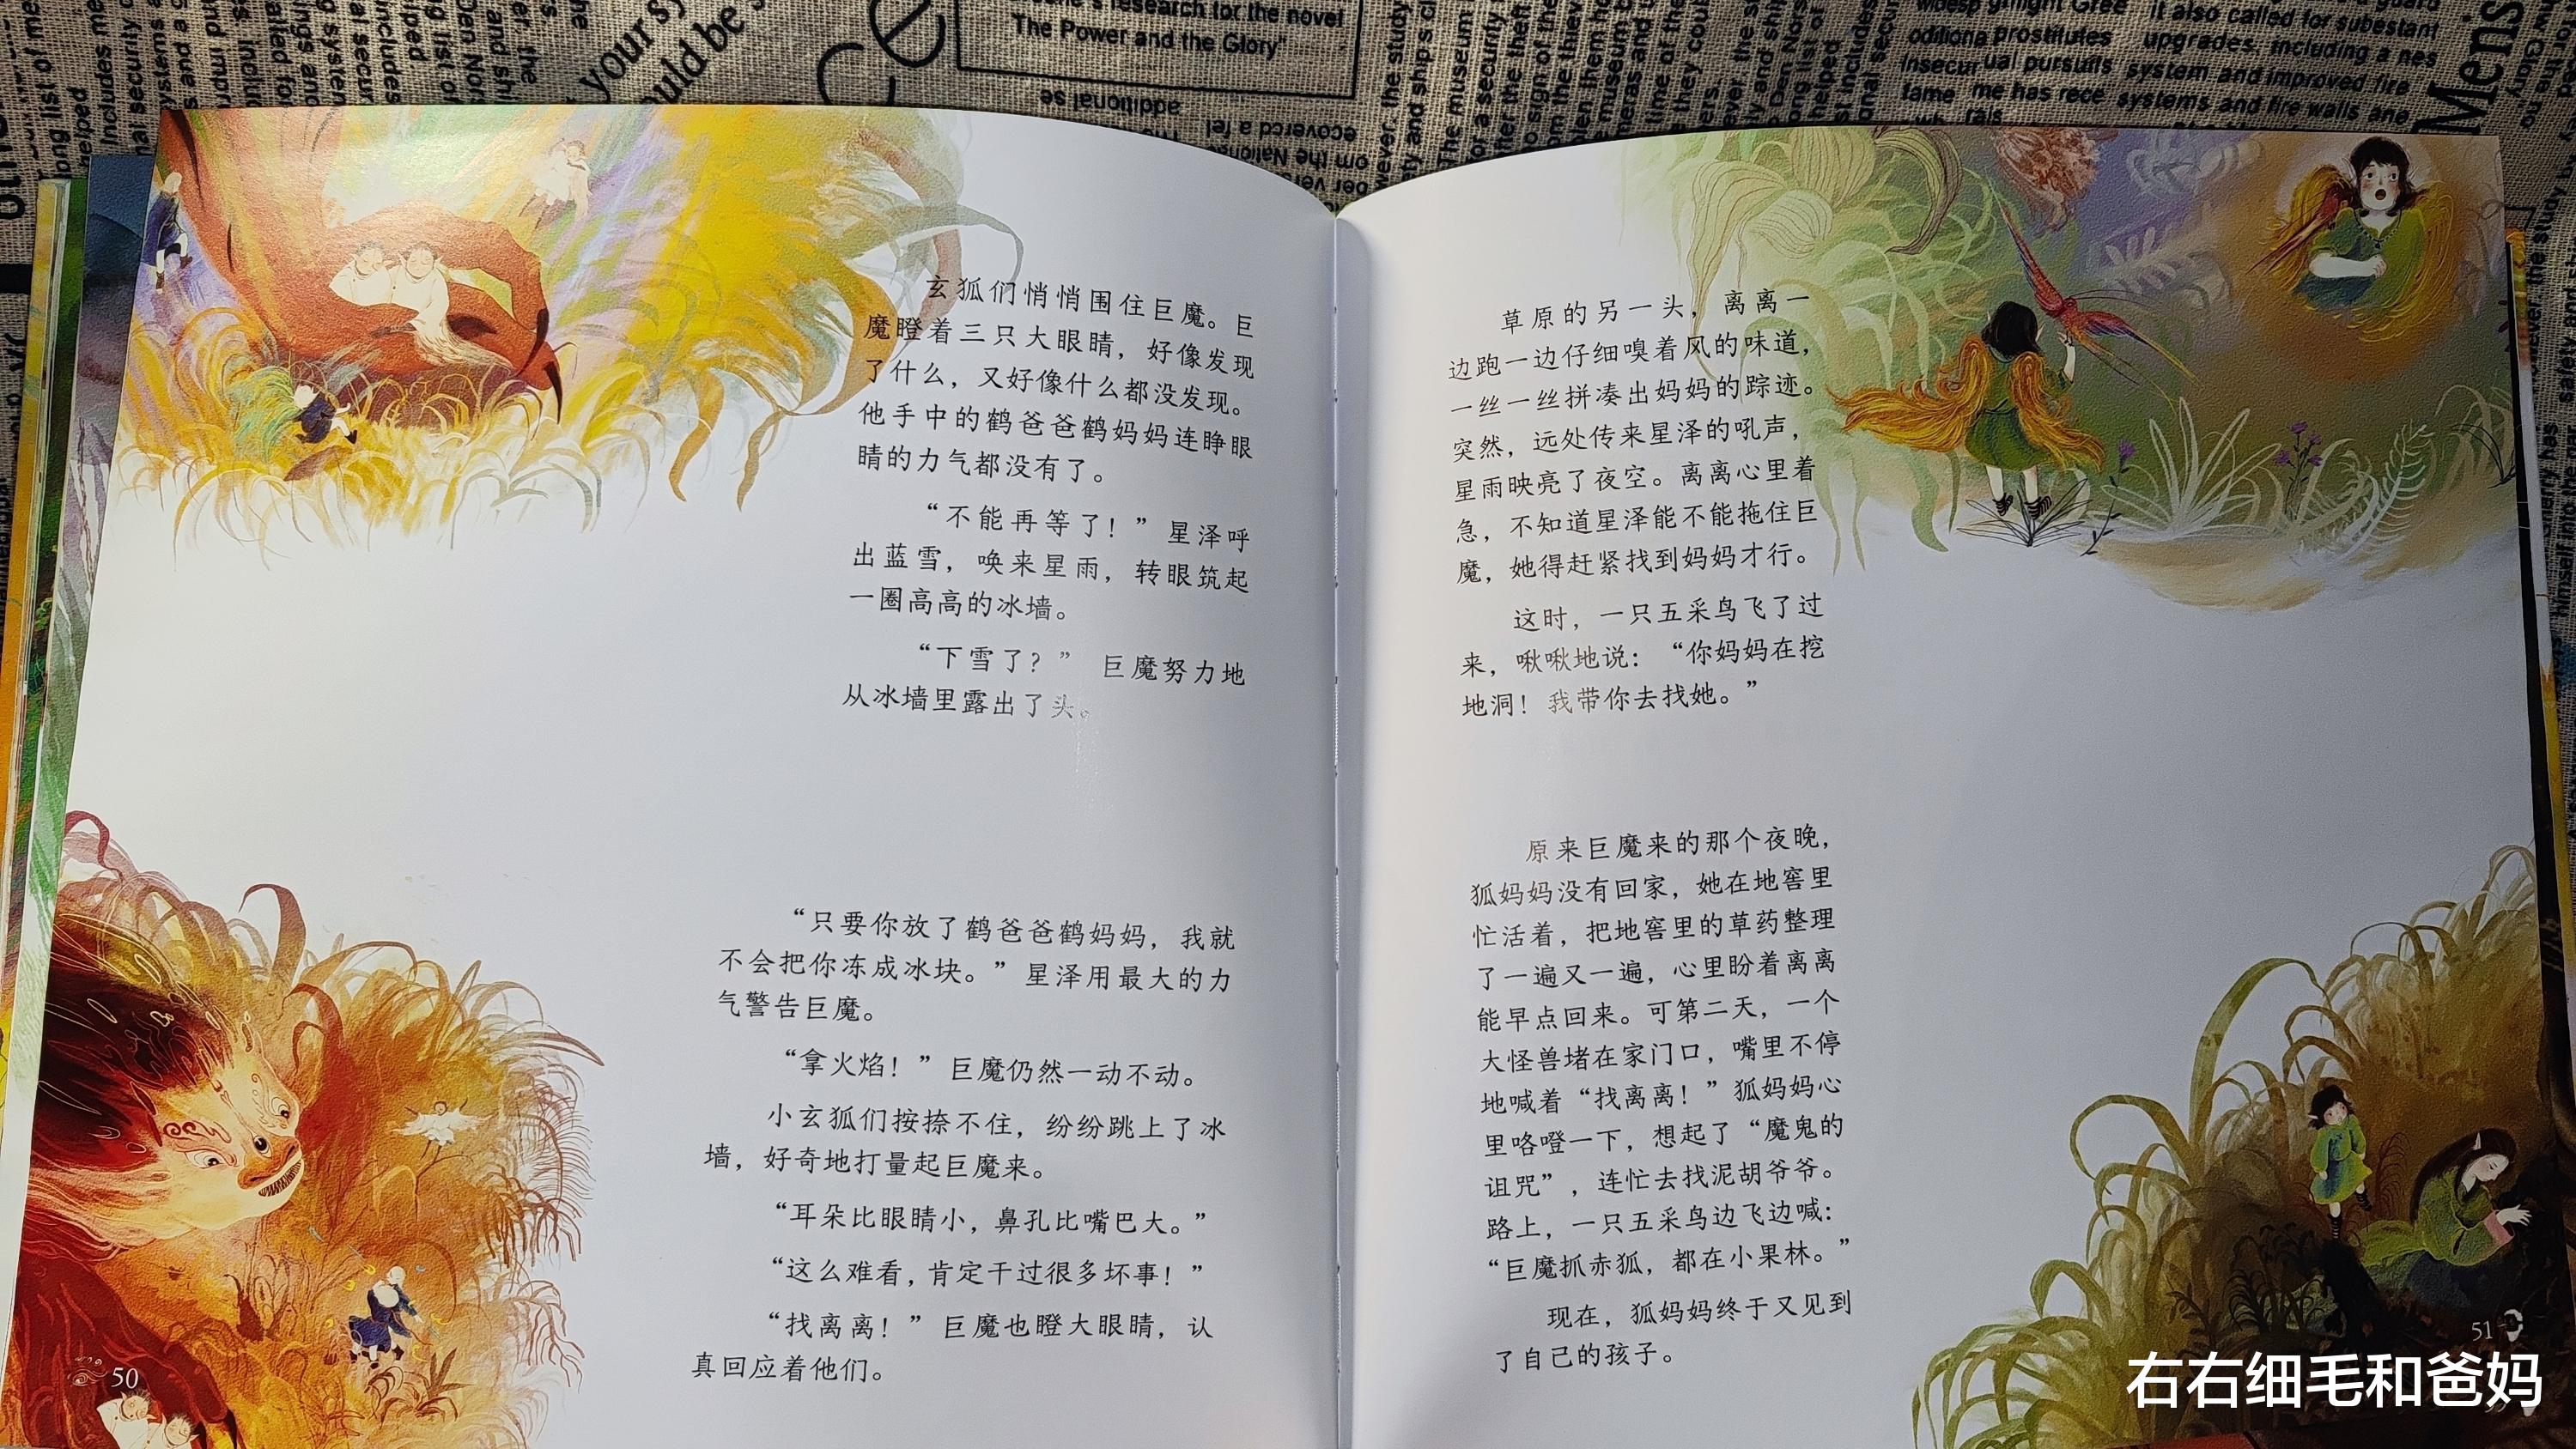 玄狐们悄悄围住巨魔。巨
魔瞪着三只大眼睛，好像发现
了什么，又好像什么都没发现。
他手中的鹤爸爸鹤妈妈连睁眼
睛的力气都没有了。
“不能再等了！”星泽呼
出蓝雪，唤来星雨，转眼筑起
一圈高高的冰墙。
“下雪了？”巨魔努力地
从冰墙里露出了头。
“只要你放了鹤爸爸鹤妈妈，我就
不会把你冻成冰块。”星泽用最大的力
气警告巨魔。
“拿火焰！”巨魔仍然一动不动。
小玄狐们按捺不住，纷纷跳上了冰
墙，好奇地打量起巨魔来。
“耳朵比眼睛小，鼻孔比嘴巴大。”
“这么难看，肯定干过很多坏事！”
“找离离！”巨魔也瞪大眼睛，认
真回应着他们。
50
草原的另一头，离离一
边跑一边仔细嗅着风的味道，
一丝一丝拼凑出妈妈的踪迹。
突然，远处传来星泽的吼声，
星雨映亮了夜空。离离心里着
急，不知道星泽能不能拖住巨
魔，她得赶紧找到妈妈才行。
这时，一只五采鸟飞了过
来，啾啾地说：“你妈妈在挖
地洞！我带你去找她。”
原来巨魔来的那个夜晚，
狐妈妈没有回家，她在地窖里
忙活着，把地窖里的草药整理
了一遍又一遍，心里盼着离离
能早点回来。可第二天，一个
大怪兽堵在家门口，嘴里不停
地喊着“找离离！”狐妈妈心
里咯噔一下，想起了“魔鬼的
诅咒”，连忙去找泥胡爷爷。
路上，一只五采鸟边飞边喊：
“巨魔抓赤狐，都在小果林。”
现在，狐妈妈终于又见到
了自己的孩子。
51
右右细毛和爸妈
research for the novel
The Power and the Glory"